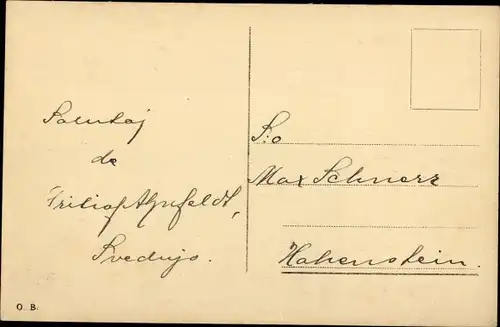 Salutoj
de
Fritiof Ahnfeldt,
Svedujo.
S:o
Max Schnerr
Hohenstein.
O. B.